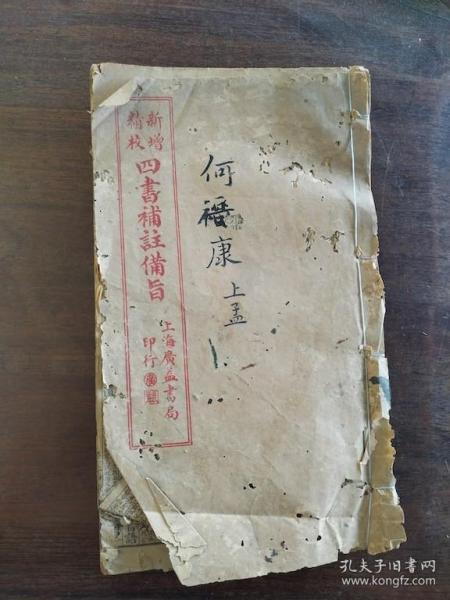 何
康
上孟
新增
精校
四書補註備旨
上海廣益書局
印行
孔夫子旧书网
www.kongfz.com